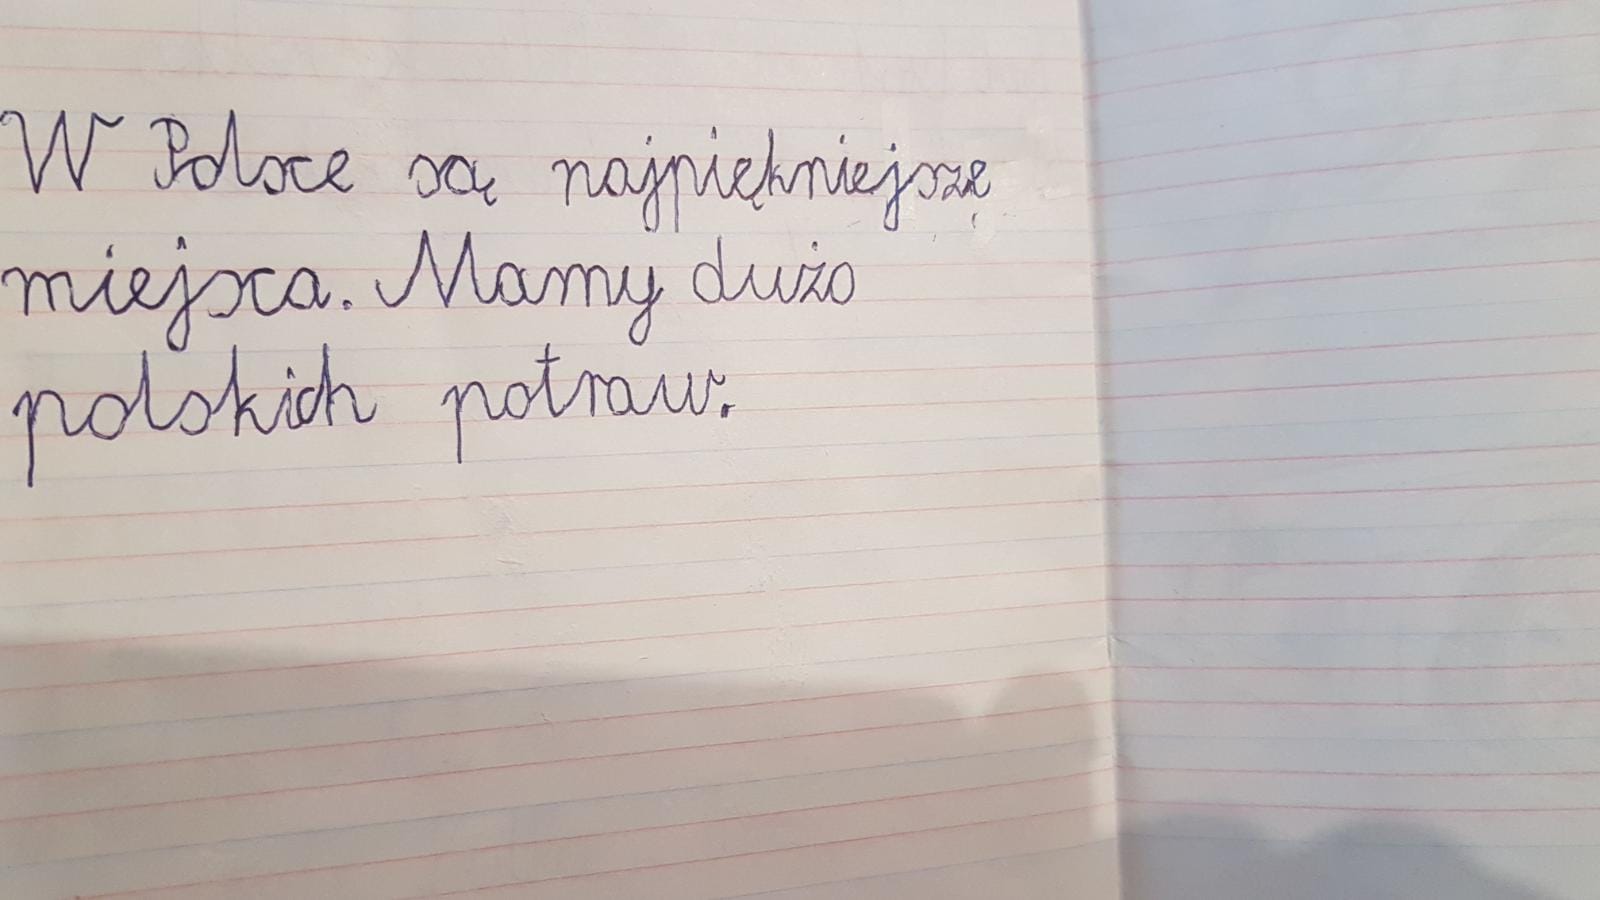 W Polsce są najpiękniejszę
miejsca. Mamy dużo
polskich potraw.